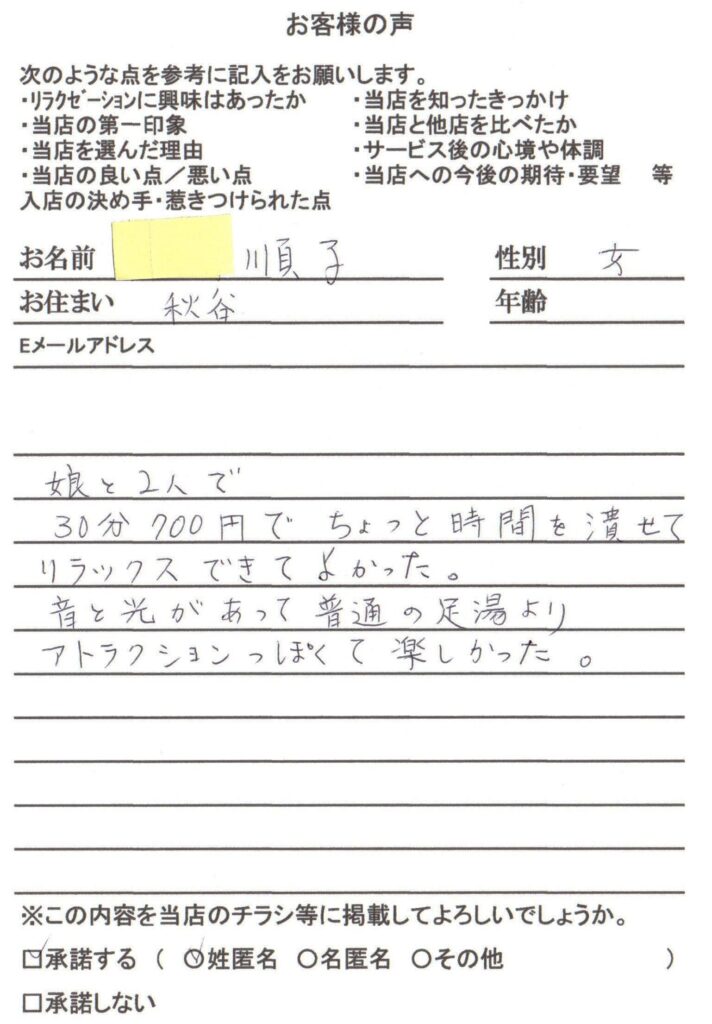 お客様の声
次のような点を参考に記入をお願いします。
・ﾘﾗｸｾﾞｰｼｮﾝに興味はあったか ・当店を知ったきっかけ
・当店の第一印象 ・当店と他店を比べたか
・当店を選んだ理由 ・サービス後の心境や体調
・当店の良い点／悪い点 ・当店への今後の期待・要望 等
入店の決め手・惹きつけられた点
お名前 順子 性別 女
お住まい 秋谷 年齢
Eメールアドレス
娘と2人で
30分700円でちょっと時間を潰せて
リラックスできてよかった。
音と光があって普通の足湯より
アトラクションっぽくて楽しかった。
※この内容を当店のチラシ等に掲載してよろしいでしょうか。
☑承諾する （ ○姓匿名 ○名匿名 ○その他 ）
□承諾しない